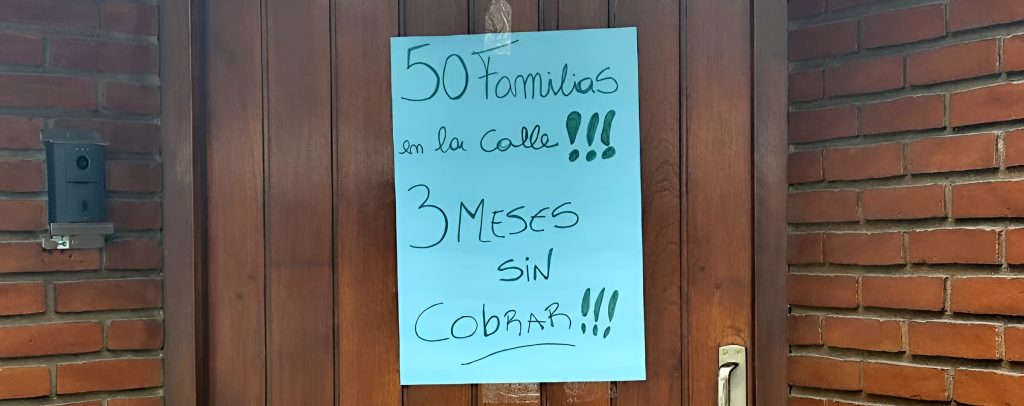 50 Familias
en la Calle !!!
3 MESES
SIN
COBRAR !!!